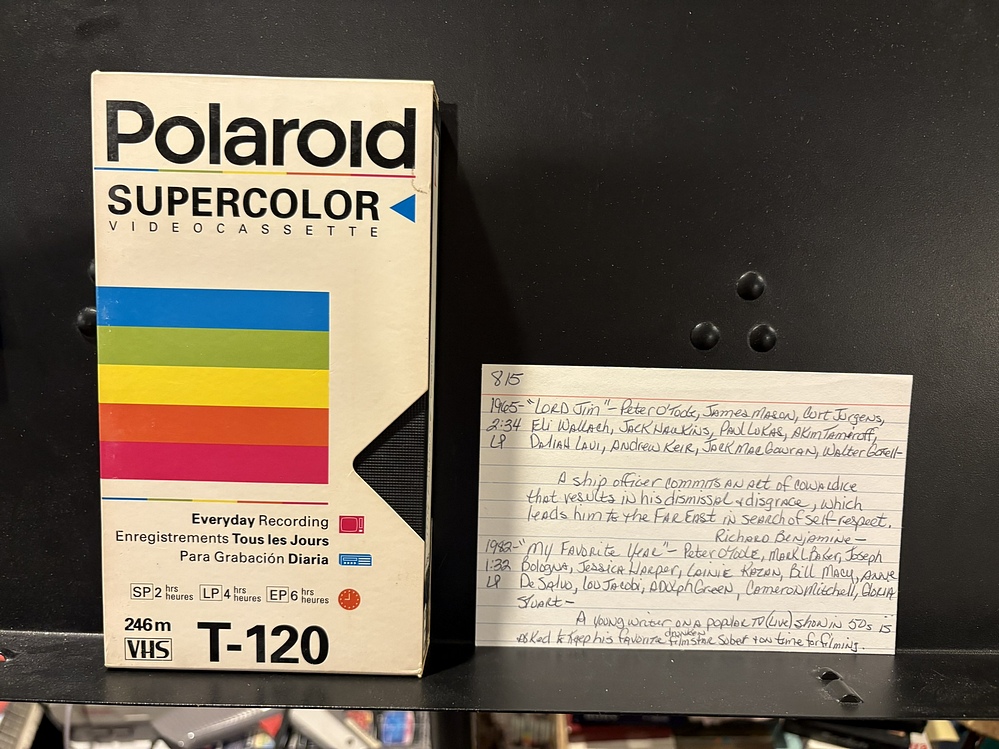 Polaroid
SUPERCOLOR
VIDEOCASSETTE
Everyday Recording
Enregistrements Tous les Jours
Para Grabación Diaria
SP 2 hrs heures LP 4 hrs heures EP 6 hrs heures
246m
VHS T-120
815
1965-"LORD JIM"- Peter O'Toole, JAMES MASON, Curt Jurgens,
2:34 Eli Wallach, JACK HAWKINS, PAUL LUKAS, AKIM TAMIROFF,
LP DALIAH LAVI, ANDREW KEIR, JACK MACGOWRAN, WALTER GOTELL-
A ship officer commits AN act of cowardice
that results in his dismissal + disgrace, which
leads him to the FAR EAST in search of self-respect.
RICHARD BENJAMINE-
1982-"MY FAVORITE YEAR"- Peter O'Toole, MARK L BAKER, Joseph
1:32 Bologna, JESSICA HARPER, LAINIE KAZAN, Bill MACY, ANNE
LP De SALVO, LOU JACOBI, ADOLPH GREEN, CAMERON MITCHELL, GLORIA
STUART-
A young writer on a popular TV (live) show in 50s is
asked to keep his favorite drunken filmstar sober + on time for filming.